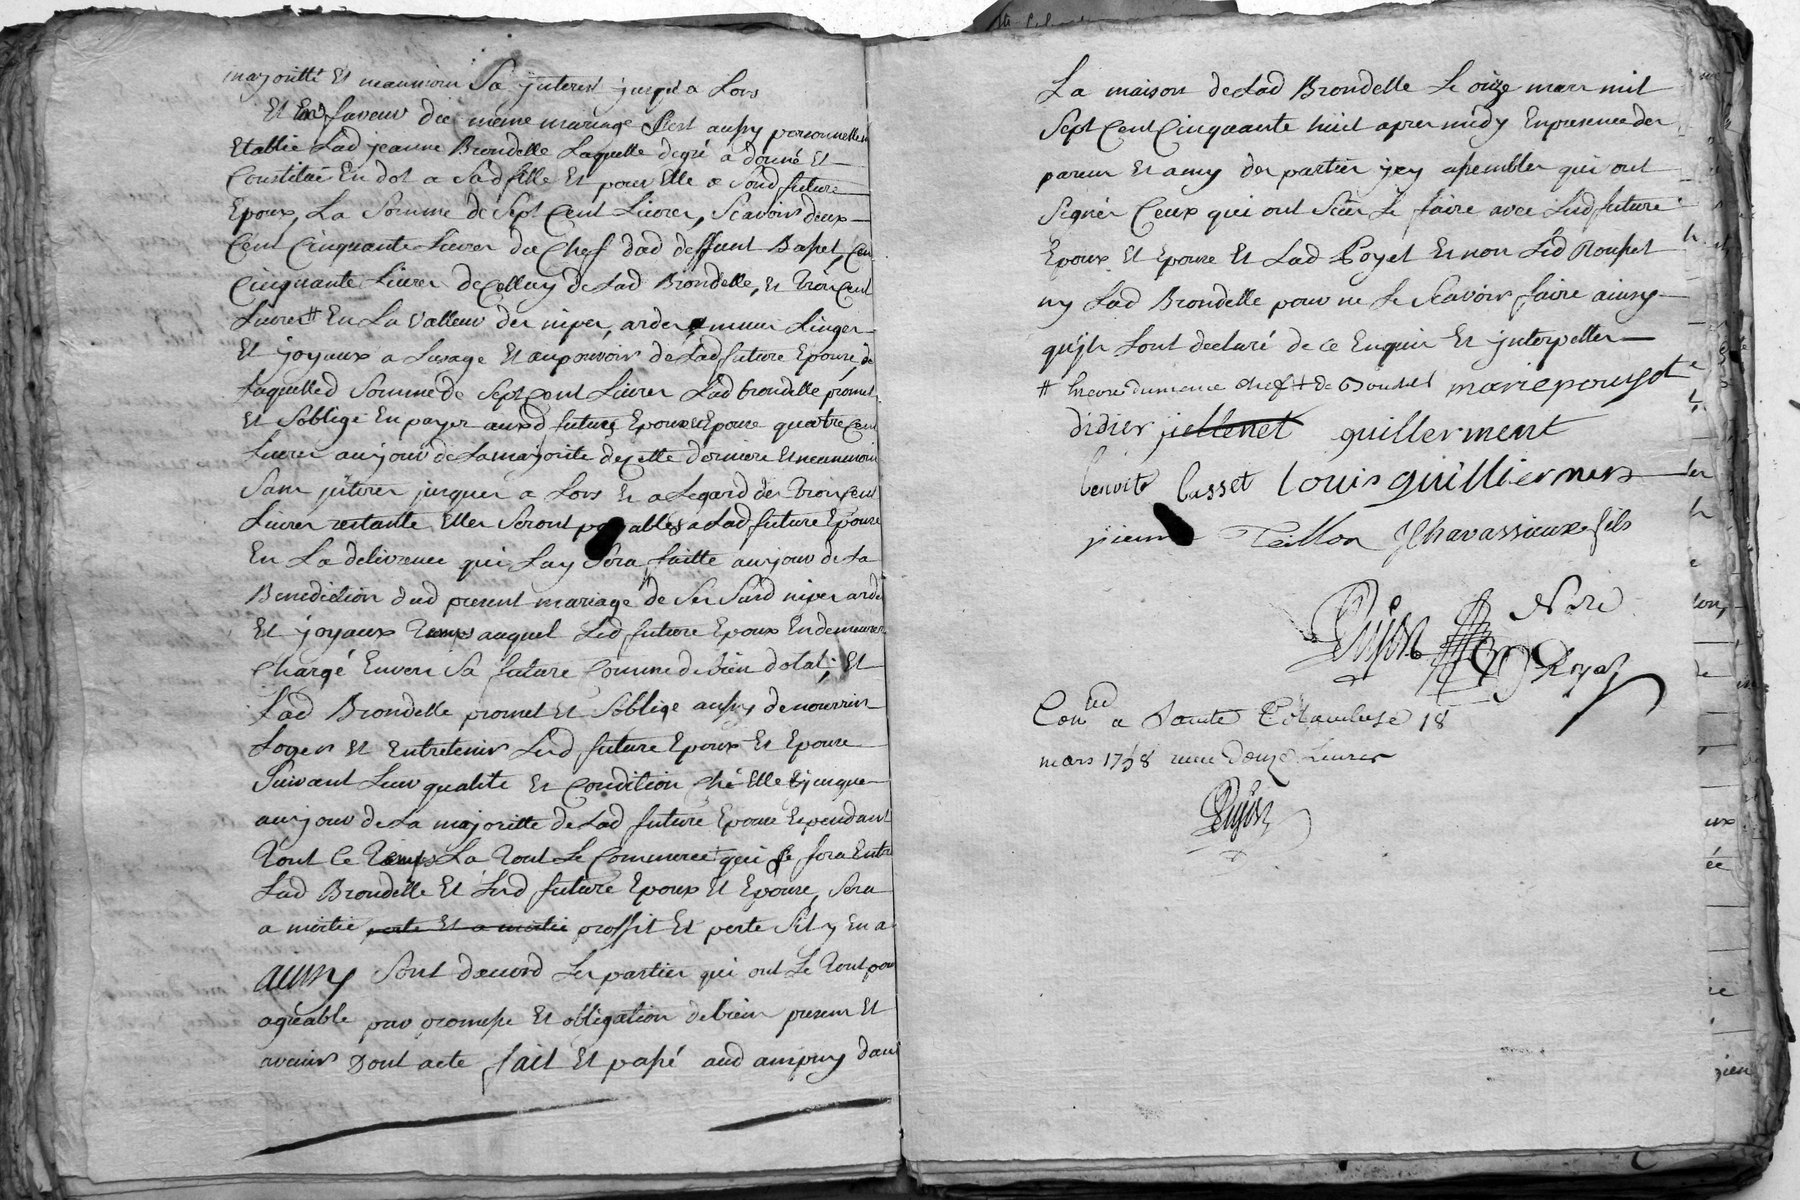 majoritté Et neanmoin Sa jnterest jusqu'a Lors
Et En faveur du même mariage Sest aussy personnellem
Etablie Lad jeanne Brondelle Laquelle degré a donné Et
Constitué En dot a Sad fille Et pour Elle a Sond future
Epoux, La Somme de Sept Cent Livres, Scavoir deux
Cent Cinquante Livres du Chef dud deffunt Basset, Cen
Cinquante Livres de Celluy de Lad Brondelle, Et Trois Cent
Livres # En La Valleur des nipes, ardes, menu Linges
Et joyaux a Lusage Et au pouvoir de Lad future Epouse, de
Laquelled Somme de Sept Cent Livres Lad brondelle promet
Et Soblige En payer auxd future Epoux Et Epouse quattre Cent
Livres au jour de La majorite de Cette derniere Et neanmoin
Sans jnteres jusques a Lors Et a Legard des Trois Cent
Livres restante Elles Seront payables a Lad future Epouse
En La delivrence qui Luy Sera faitte au jour de La
Benediction dud present mariage de Ses Susd nipes ardes
Et joyaux Temps auquel Led future Epoux En demeurera
Chargé Envers Sa future Comme de bien dotal; Et
Lad Brondelle promet Et Soblige aussy de nourrir
Loger Et Entretenir Lesd future Epoux Et Epouse
Suivant Leur qualité Et Condition Ché Elle Et jusque
au jour de La majoritte de Lad future Epouse Et pendant
Tout Ce Temps La Tout Le Commerce qui Se fera Entre
Lad Brondelle Et Lesd future Epoux Et Epouse, Sera
a moitié perte Et a moitié proffit Et perte Sil y En a
ainsy Sont daccord Les parties qui ont Le Tout pour
agréable par promesse Et obligation de bien present Et
avenir Dont acte fait Et passé aud ampuy dans
La maison de Lad Brondelle Le onze mars mil
Sept Cent Cinquante huit apres midy En presence des
parens Et amy des parties jcy assembles qui ont
Signés Ceux qui ont Sceu Le faire avec Lesd future
Epoux Et Epouse Et Lad Poyet Et non Led Rousset
ny Lad Brondelle pour ne Le Scavoir faire ainsy
qu'jls Sont declaré de ce Enquis Et jnterpelles
# Encore du meme chef marie pousot
didier jellenet guillerment
benoite basset Louis guilliermers
pierre Teillon Chavassieux fils
Dujon Nore
Royal
Con a Sainte Colambe 18
mars 1758 receu douze Livres
Dujon